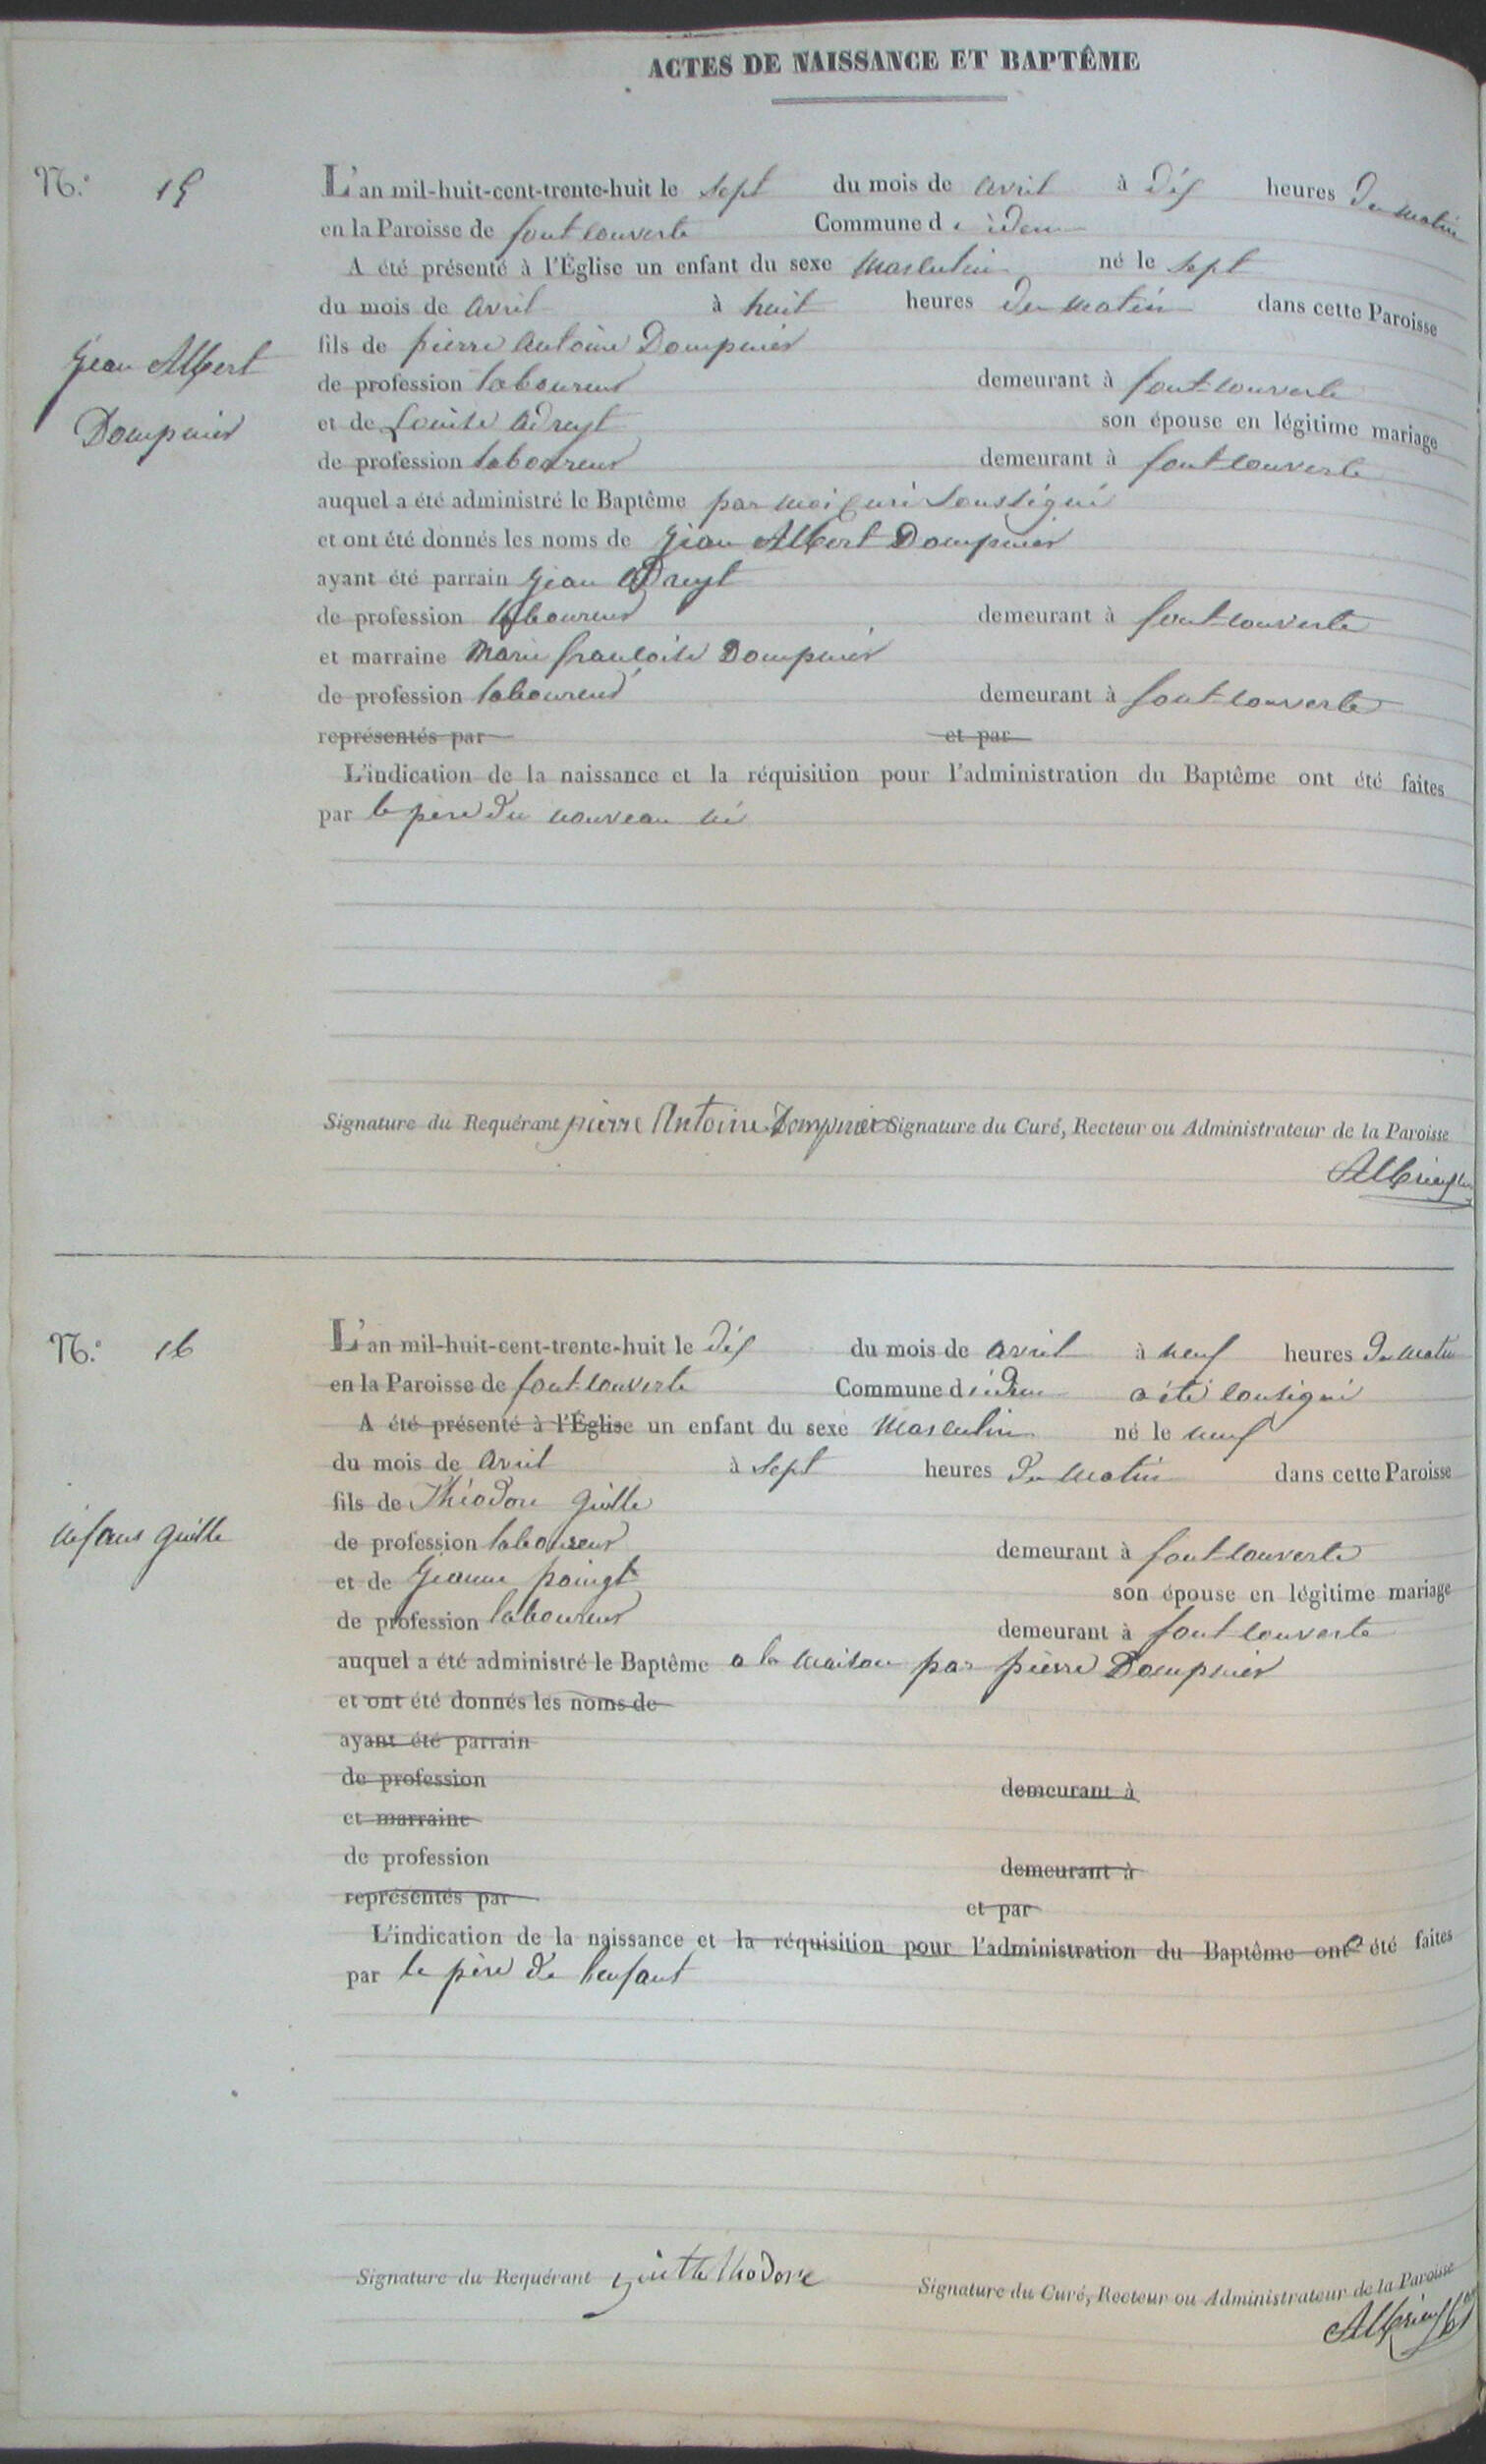 ACTES DE NAISSANCE ET BAPTÊME
N.° 15
L'an mil-huit-cent-trente-huit le sept du mois de avril à dix heures du matin
en la Paroisse de fontcouverte Commune de idem
A été présenté à l'Église un enfant du sexe masculin né le sept
du mois de avril à huit heures du matin dans cette Paroisse
fils de pierre antoine Dompnier
Jean Albert
Dompnier
de profession laboureur demeurant à fontcouverte
et de Louise adreyt son épouse en légitime mariage
de profession laboureur demeurant à fontcouverte
auquel a été administré le Baptême par moi curé soussigné
et ont été donnés les noms de Jean Albert Dompnier
ayant été parrain Jean adreyt
de profession laboureur demeurant à fontcouverte
et marraine Marie françoise Dompnier
de profession laboureur demeurant à fontcouverte
représentés par et par
L'indication de la naissance et la réquisition pour l'administration du Baptême ont été faites
par le père du nouveau né
Signature du Requérant pierre Antoine Dompnier Signature du Curé, Recteur ou Administrateur de la Paroisse
N.° 16
L'an mil-huit-cent-trente-huit le dix du mois de avril à neuf heures du matin
en la Paroisse de fontcouverte Commune d idem a été consigné
A été présenté à l'Église un enfant du sexe masculin né le neuf
du mois de avril à sept heures du matin dans cette Paroisse
fils de Théodore guille
de profession laboureur demeurant à fontcouverte
et de Jeanne poingt son épouse en légitime mariage
de profession laboureur demeurant à fontcouverte
auquel a été administré le Baptême a la maison par pierre Dompnier
et ont été donnés les noms de
ayant été parrain
de profession demeurant à
et marraine
de profession demeurant à
représentés par et par
L'indication de la naissance et la réquisition pour l'administration du Baptême ont été faites
par le père de l'enfant
Signature du Requérant Signature du Curé, Recteur ou Administrateur de la Paroisse